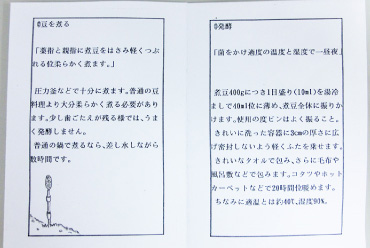 ①豆を煮る
「薬指と親指に煮豆をはさみ軽くつぶ
れる位柔らかく煮ます。」
圧力釜などで十分に煮ます。普通の豆
料理より大分柔らかく煮る必要があり
ます。少し歯ごたえが残る様では、うま
く発酵しません。
普通の鍋で煮るなら、差し水しながら
数時間です。
発酵
「菌をかけ適度の温度と湿度で一昼夜」
煮豆400gにつき1目盛り(10ml)を湯冷
ましで40ml位に薄め、煮豆全体に振りか
けます。使用の度ビンはよく振ること。
きれいに洗った容器に3cmの厚さに広
げ密封しないよう軽くふたを乗せます。
きれいなタオルで包み、さらに毛布や
風呂敷などで包みます。コタツやホット
カーペットなどで20時間位暖めます。
ちなみに適温とは約40℃、湿度90%。